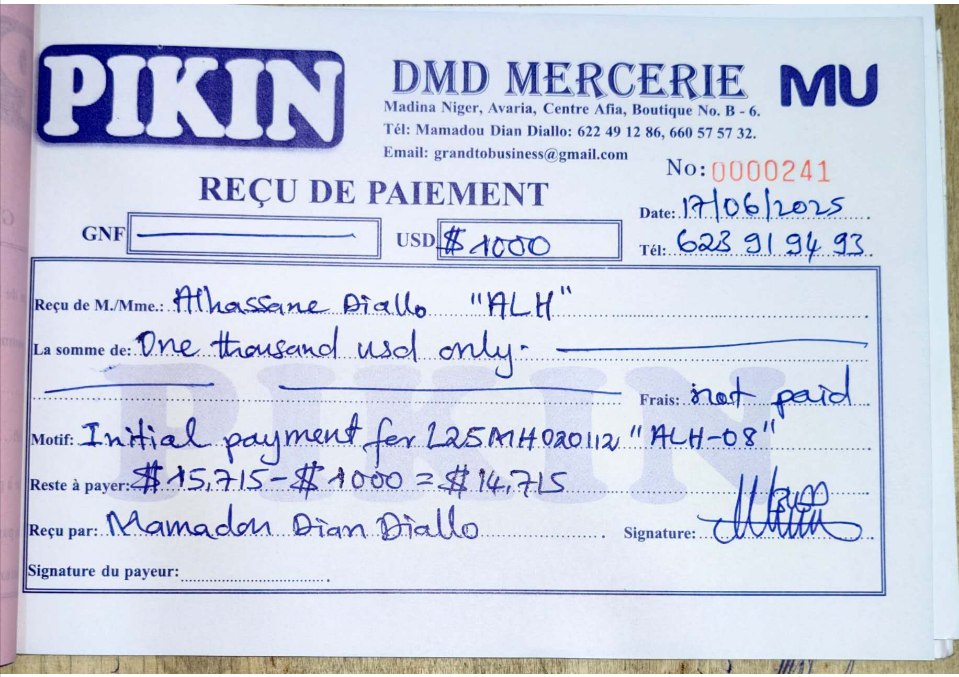 PIKIN
DMD MERCERIE
MU
Madina Niger, Avaria, Centre Afia, Boutique No. B - 6.
Tél: Mamadou Dian Diallo: 622 49 12 86, 660 57 57 32.
Email: grandtobusiness@gmail.com
No: 0000241
REÇU DE PAIEMENT
Date: 17/06/2025
GNF
USD $ 1000
Tél: 623 91 94 93
Reçu de M./Mme.: Alhassane Diallo "ALH"
La somme de: One thousand usd only.
Frais: not paid
Motif: Initial payment for L25MH020112 "ALH-08"
Reste à payer: $15,715 - $1000 = $14,715
Reçu par: Mamadou Dian Diallo
Signature:
Signature du payeur:
PIKIN